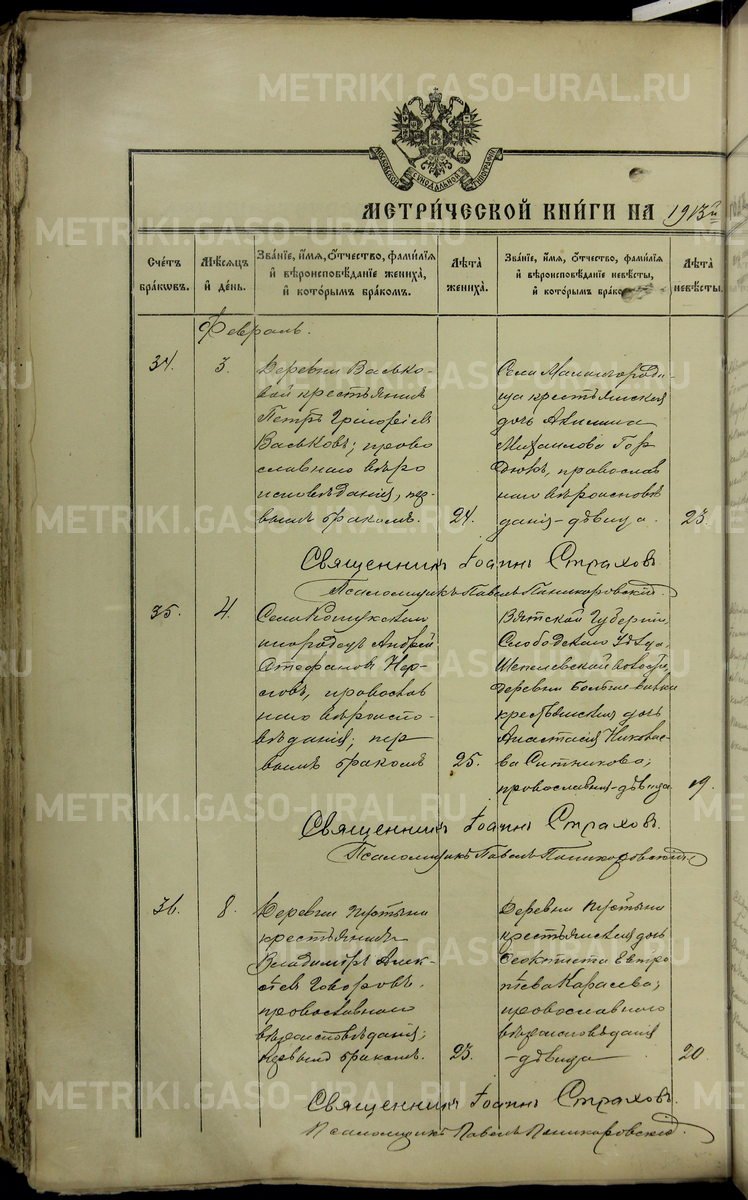 METRIKI.GASO-URAL.RU
МОСКОВСКОЙ СѴНОДАЛЬНОЙ ТИПОГРАФІИ
МЕТРИ́ЧЕСКОЙ КНИ́ГИ НА 1913й
Сче́тъ бра́кѡвъ.
Мѣ́сяцъ й де́нь.
Зва́нїе, и́мя, ѻ́тчество, фами́лїя й вѣроисповѣ́данїе жениха̀, й кото́рымъ бра́комъ.
Лѣ́та жениха̀.
Зва́нїе, и́мя, ѻ́тчество, фами́лїя й вѣроисповѣ́данїе невѣ́сты, й кото́рымъ бра́ко
Лѣ́та невѣ́сты.
Февраль.
34.
3.
Деревни Васько-
вой крестьянинъ
Петръ Григоріевъ
Васьковъ; право
славнаго вѣро
исповѣданія, пер-
вымъ бракомъ.
24.
Села
крестьянская
дочь Акилина
Михаилова Гор
дюкъ, православ
наго вѣроисповѣ
данія - дѣвица.
23.
Священникъ Іоаннъ Страховъ.
Псаломщикъ Павелъ Паникоровскій.
35.
4.
Села Кошукскаго
инородецъ Андрей
Стефановъ
православ
наго вѣроиспо-
вѣданія; пер
вымъ бракомъ
25.
Вятской губерніи,
Слободскаго Уѣзда,
Шепелевской волости,
деревни
крестьянская дочь
Анастасія Николае-
ва Ситникова;
православная - дѣвица.
19.
Священникъ Іоаннъ Страховъ.
Псаломщикъ Павелъ Паникоровскій
36.
8.
Деревни Пустыни
крестьянинъ
Владимиръ Алек-
сѣевъ Говоровъ,
православнаго
вѣроисповѣданія;
первымъ бракомъ.
23.
Деревни Пустыни
крестьянская дочь
Феоктиста Евтро
піева Карасева;
православнаго
вѣроисповѣданія
- дѣвица
20.
Священникъ Іоаннъ Страховъ.
Псаломщикъ Павелъ Паникоровскій.